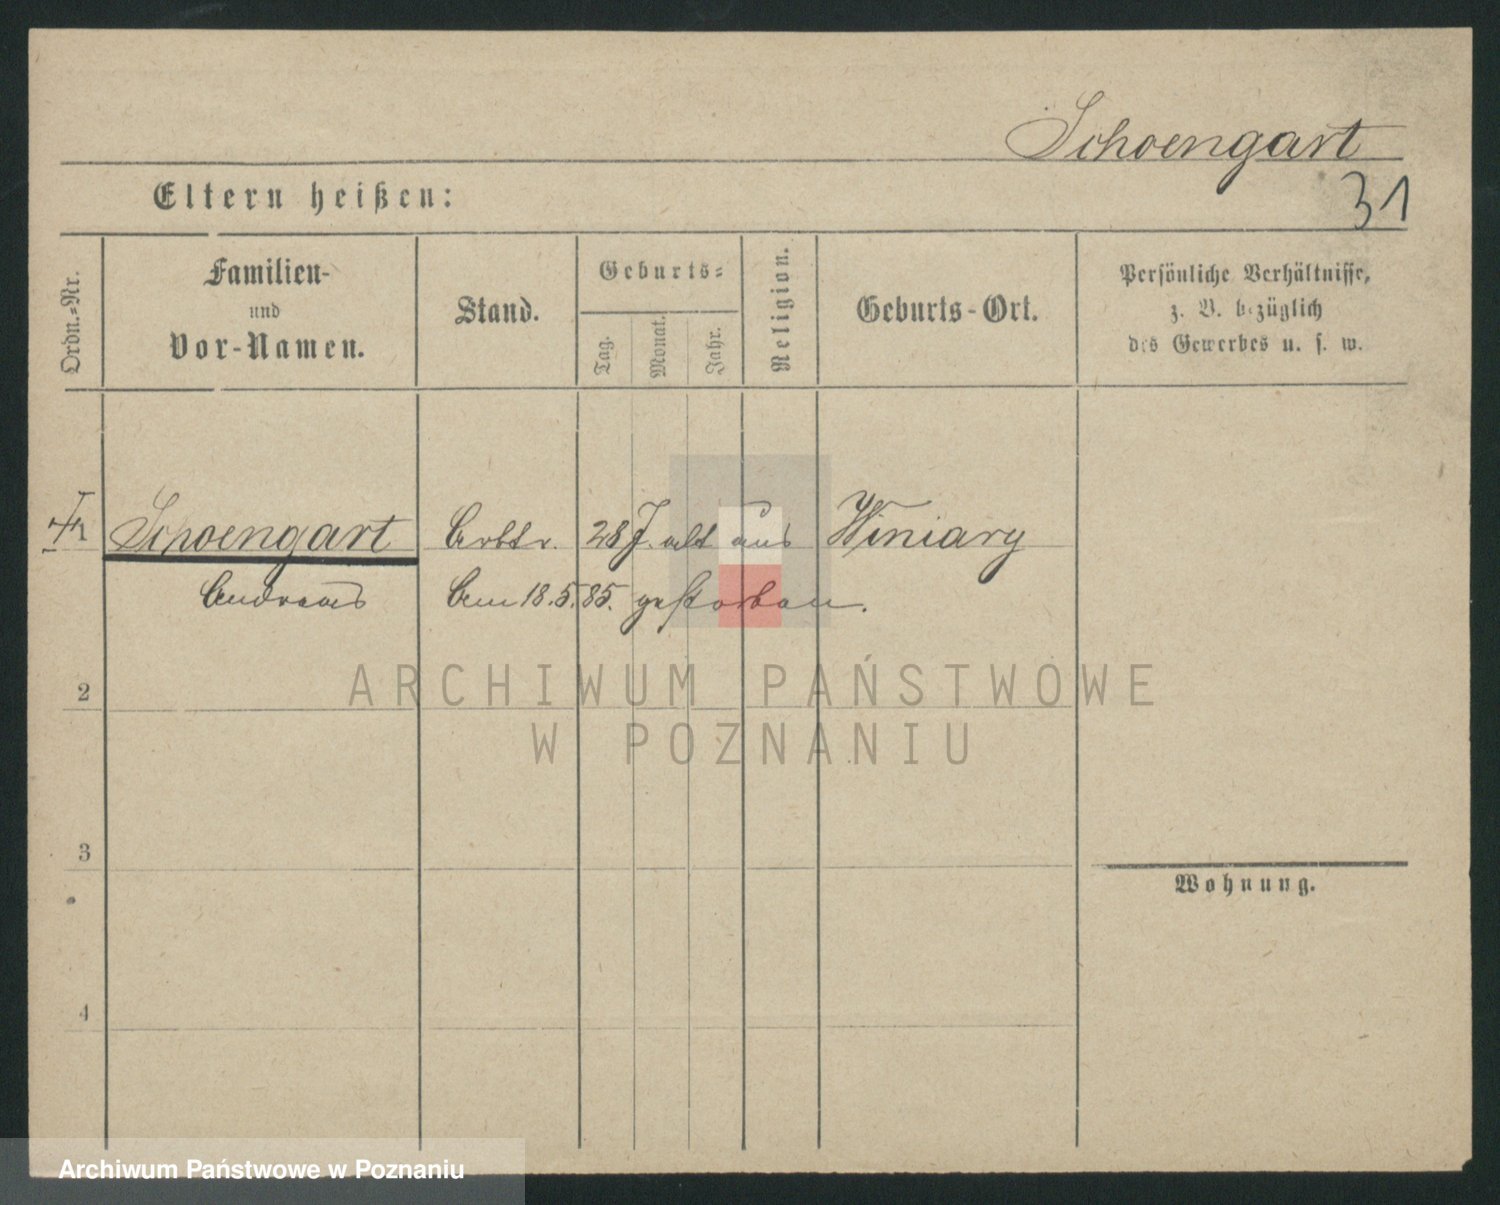 Schoengart
Eltern heißen:
31
Ordn.-Nr.
Familien-
und
Vor-Namen.
Stand.
Geburts-
Tag.
Monat.
Jahr.
Religion.
Geburts-Ort.
Persönliche Verhältnisse,
z. B. bezüglich
des Gewerbes u. s. w.
1 Schoengart Arbtr. 28 J. alt aus Winiary
Andreas Am 18.5.85. gestorben.
2
3
4
Wohnung.
ARCHIWUM PAŃSTWOWE
W POZNANIU
Archiwum Państwowe w Poznaniu